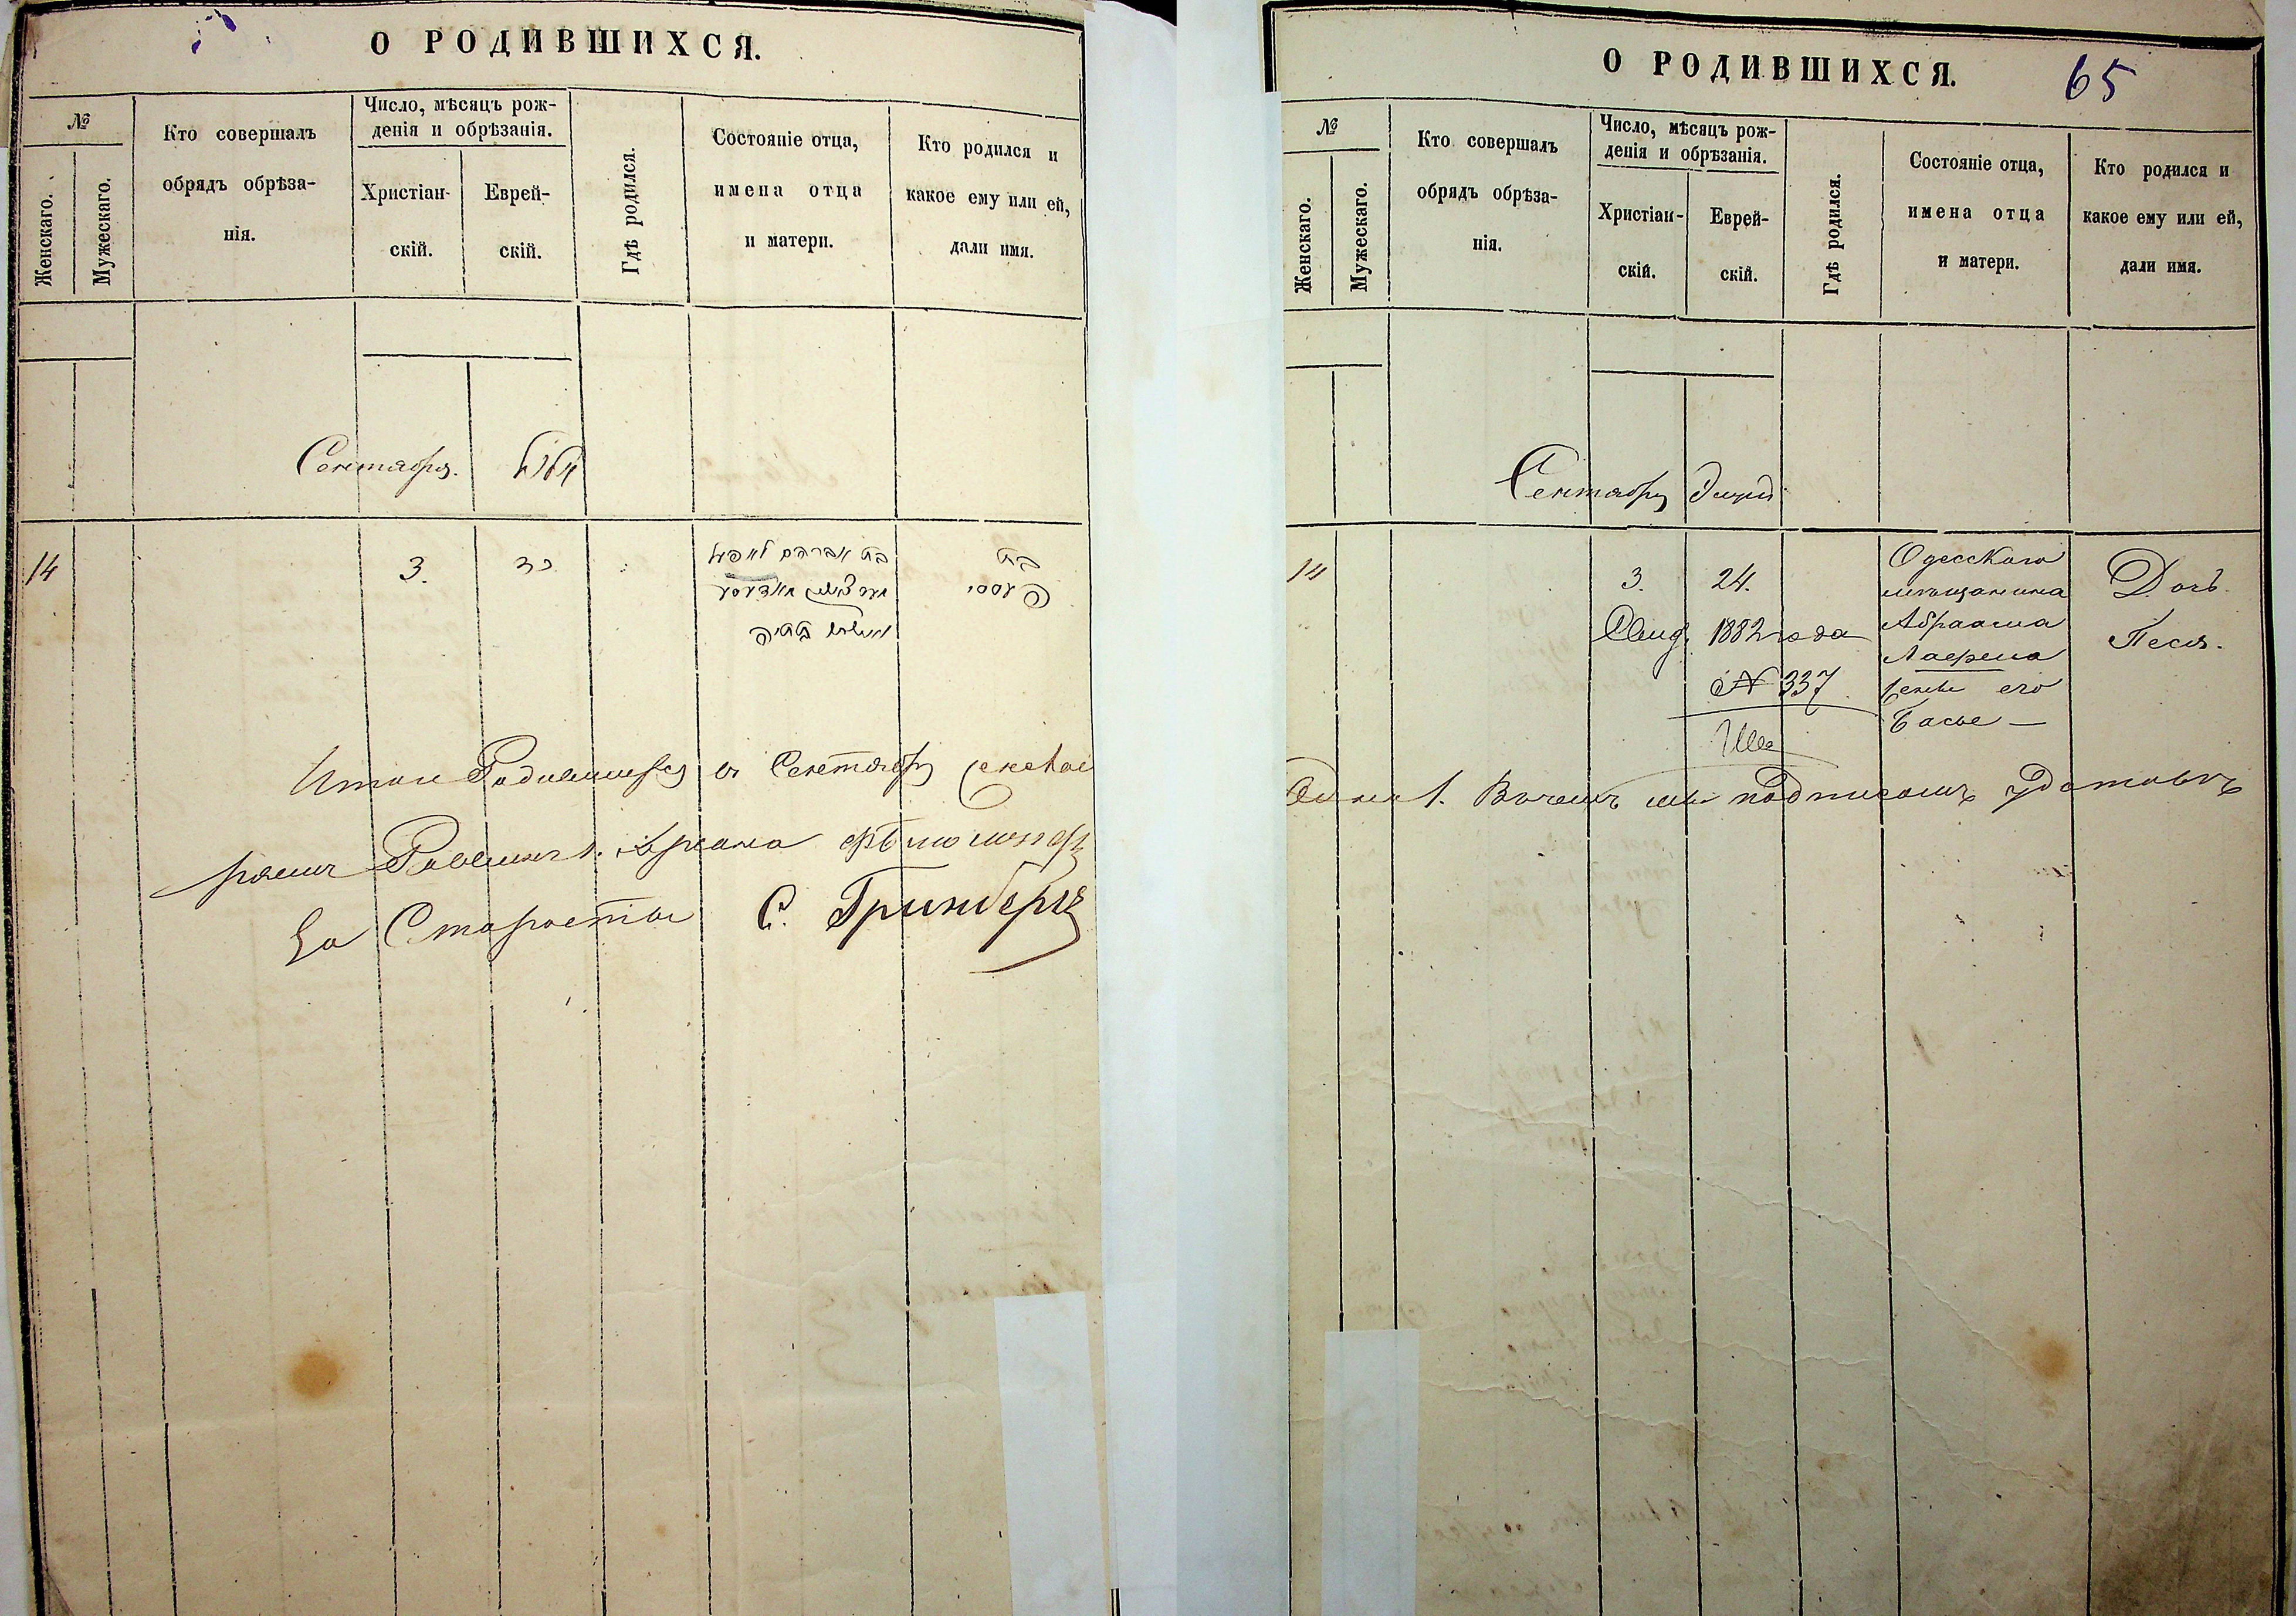 О РОДИВШИХСЯ.
№
Женскаго.
Мужескаго.
Кто совершалъ
обрядъ обрѣза-
нія.
Число, мѣсяцъ рож-
денія и обрѣзанія.
Христіан-
скій.
Еврей-
скій.
Гдѣ родился.
Состояніе отца,
имена отца
и матери.
Кто родился и
какое ему или ей,
дали имя.
Сентября. אלול
14
3.
כד
בת אברהם
בת
פעסי
בתיה
Итого Родившихся въ Сентябрѣ женскаго
Раввинъ
За Старосты С. Гринбергъ
О РОДИВШИХСЯ.
65
№
Женскаго.
Мужескаго.
Кто совершалъ
обрядъ обрѣза-
нія.
Число, мѣсяцъ рож-
денія и обрѣзанія.
Христіан-
скій.
Еврей-
скій.
Гдѣ родился.
Состояніе отца,
имена отца
и матери.
Кто родился и
какое ему или ей,
дали имя.
Сентябрь Элулъ
14
3.
24.
1882 года
№ 337
Одесскаго
мещанина
Абраама
Лаефена
жене его
Басье —
Дочь.
Песя.
1. Въ чемъ мы подписомъ